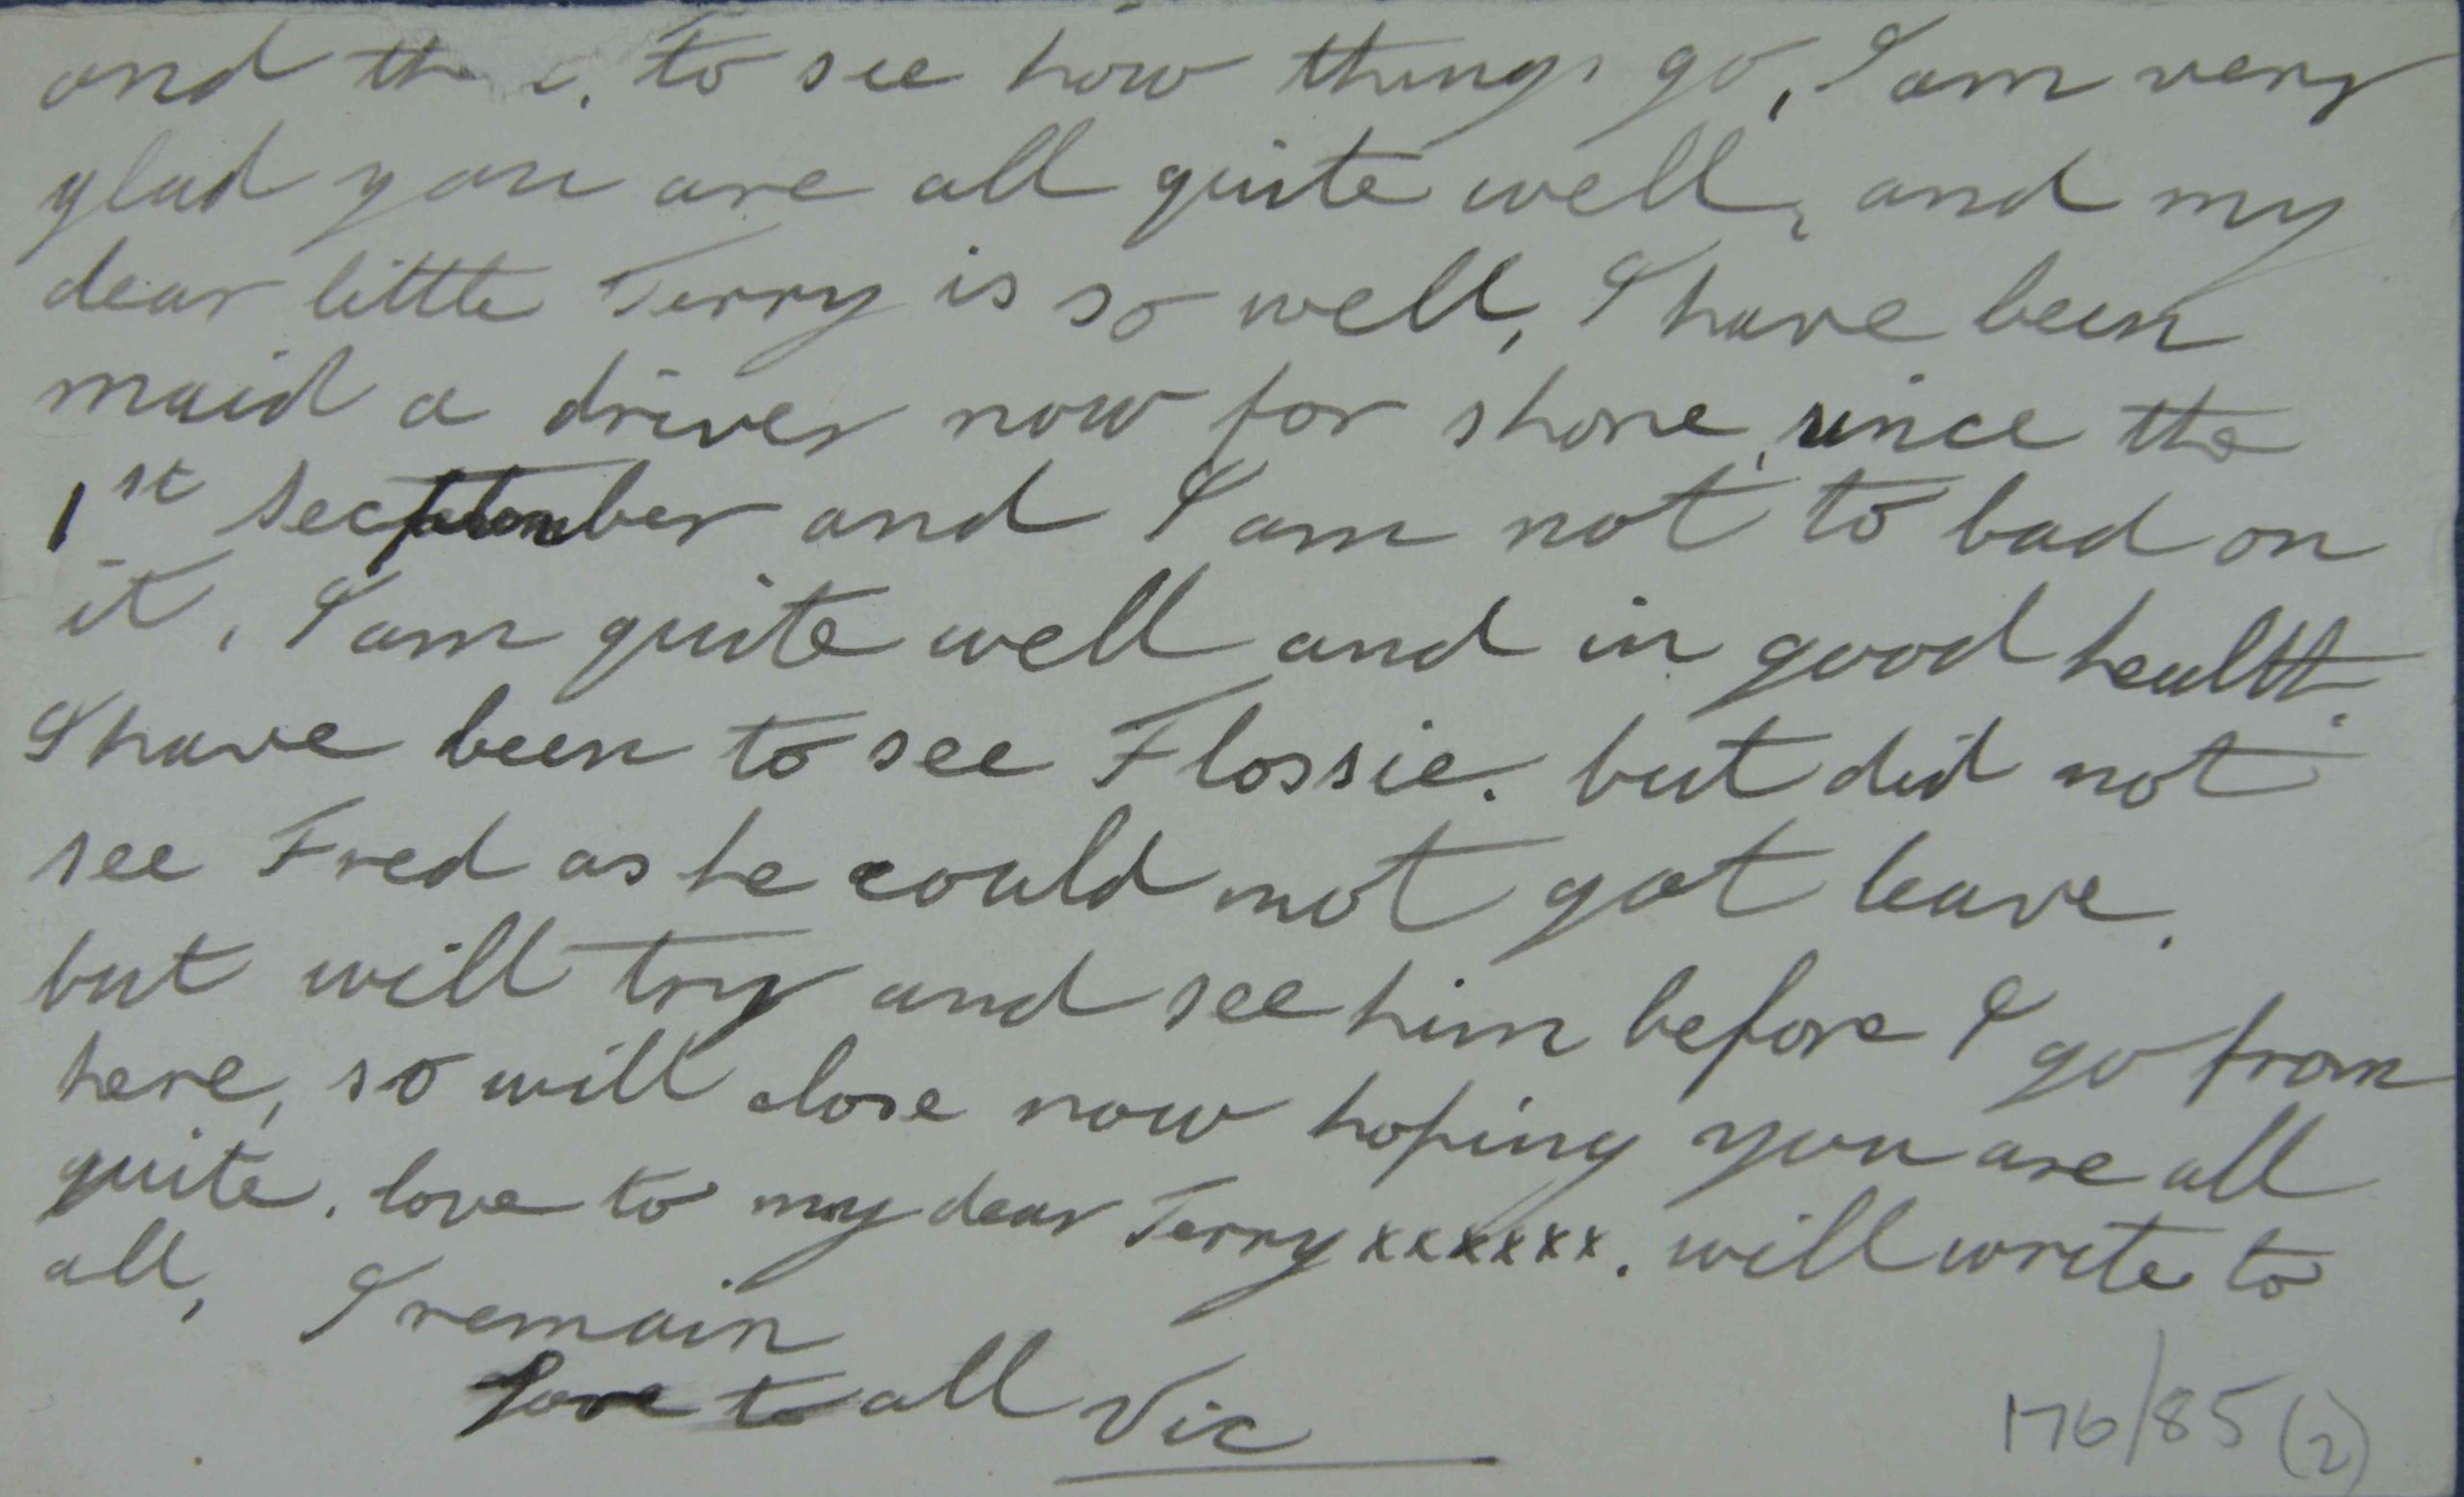 and to see how things go, I am very
glad you are all quite well, and my
dear little Terry is so well, I have been
maid a driver now for shore, since the
1st September and I am not to bad on
it, I am quite well and in good health.
I have been to see Flossie. but did not
see Fred as he could not got leave.
but will try and see him before I go from
here, so will close now hoping you are all
quite. love to my dear Terry xxxxxx. will write to
all, I remain
Love to all Vic
176/85 (2)